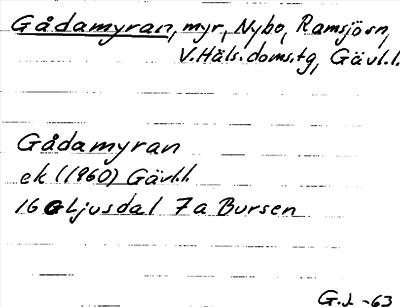 Gådamyran, myr, Nybo, Ramsjö sn,
V. Häls. doms.tg, Gävl.l.
Gådamyran
ek (1960) Gävl.l.
16 G Ljusdal 7a Bursen
G.J. -63